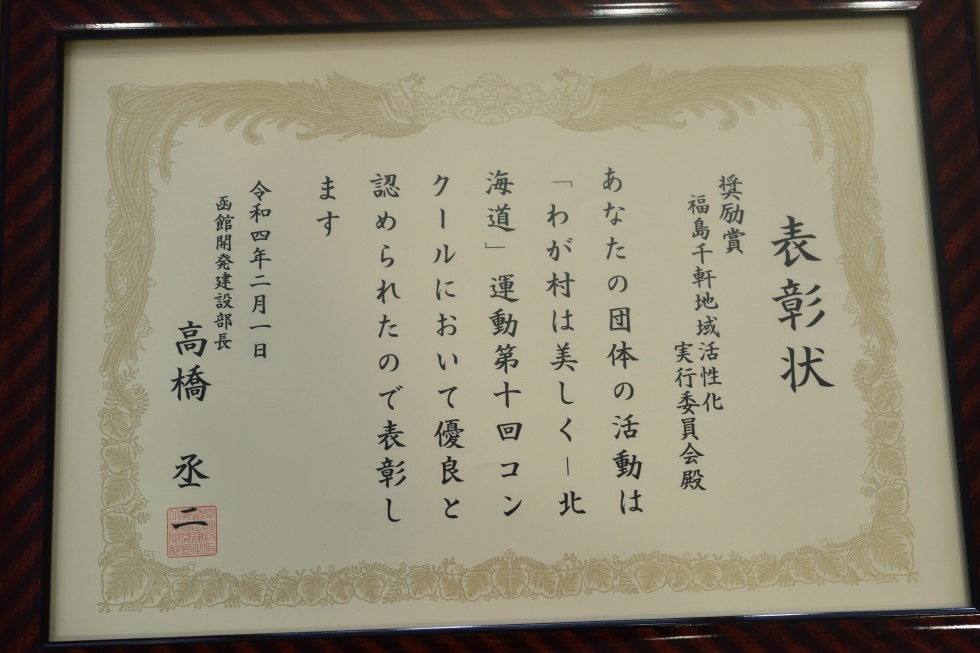 表彰状
奨励賞
福島千軒地域活性化
実行委員会殿
あなたの団体の活動は
「わが村は美しく－北
海道」運動第十回コン
クールにおいて優良と
認められたので表彰し
ます
令和四年二月一日
函館開発建設部長
高橋丞二